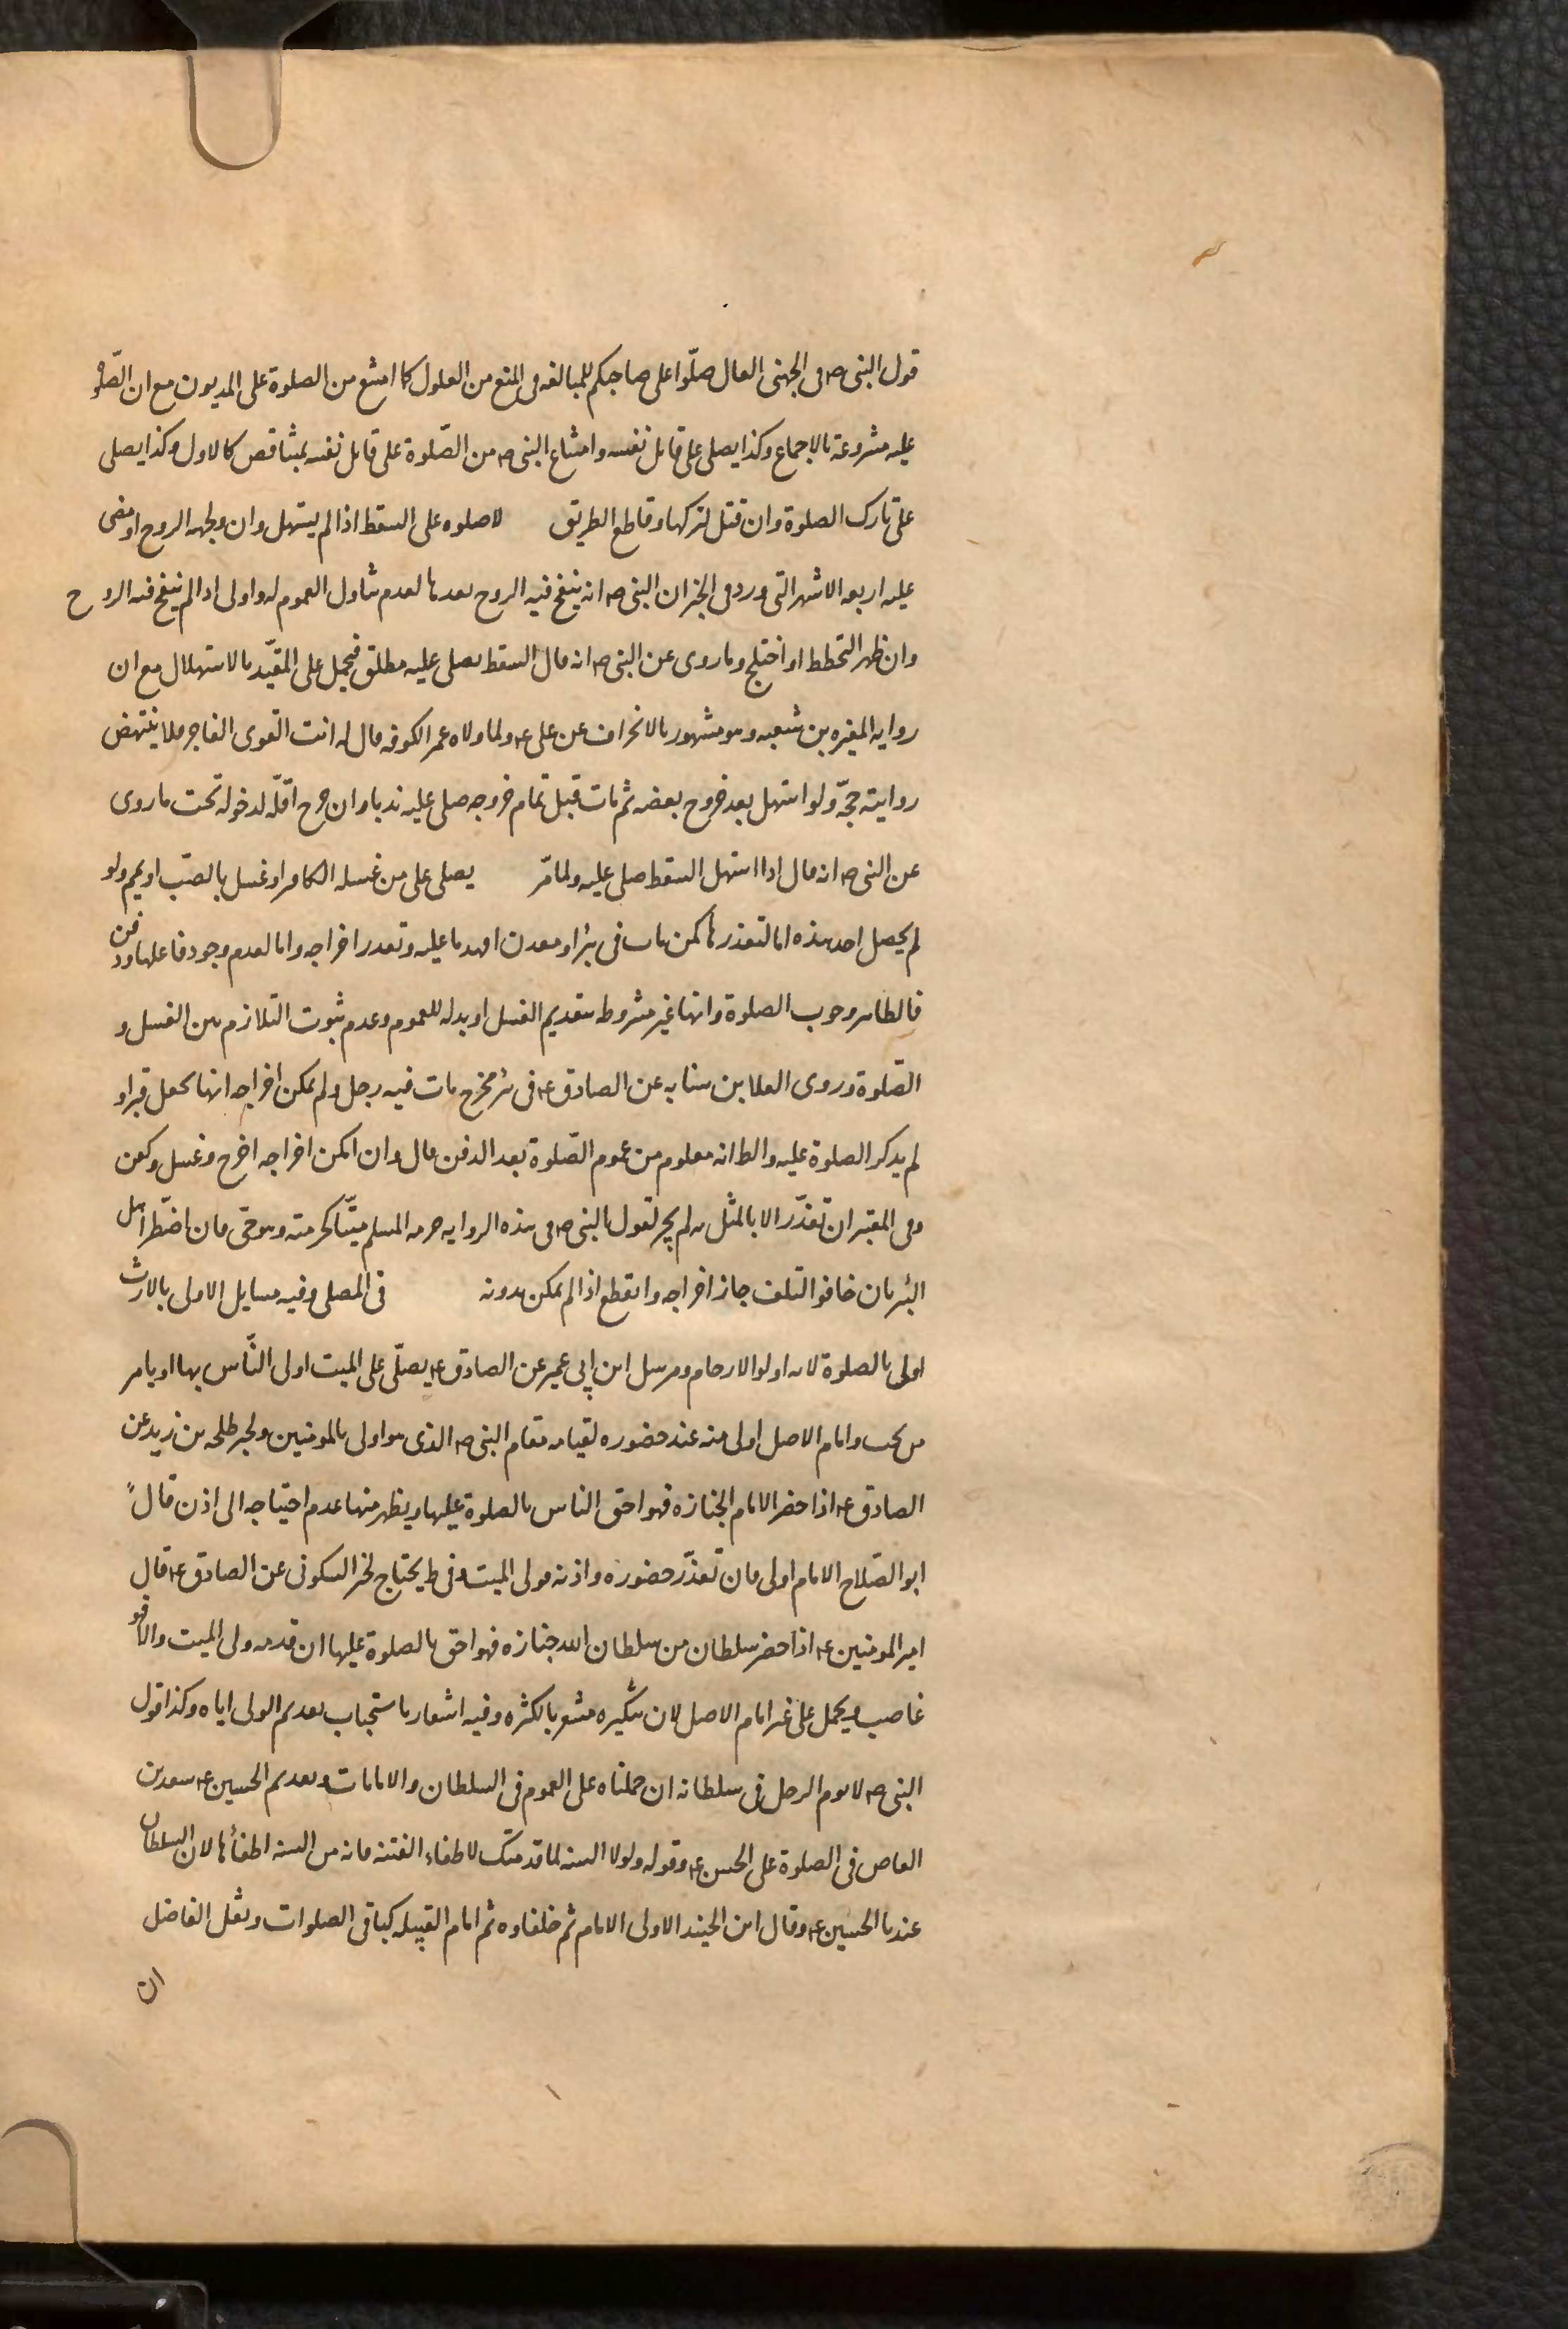 قول النبى ص فى الجهنى الغال صلّوا على صاحبكم للمبالغه فى المنع من الغلول كما امتنع من الصلوة على المديون مع ان الصّلوة
عليه مشروعة بالاجماع وكذا يصلى على قاتل نفسه وامتناع النبى ص من الصّلوة على قاتل نفسه بمشاقص كالاول وكذا يصلى
على تارك الصلوة وان قتل لتركها وقاطع الطريق لا صلوه على السقط اذا لم يستهل وان ولجه الروح او مضى
عليه اربعه الاشهر التى ورد فى الخبر ان النبى ص انه ينفخ فيه الروح بعدها لعدم تناول العموم له واولى اذا لم ينفخ فيه الروح
وان ظهر التخطط او اختلج وما روى عن النبى ص انه قال السقط يصلى عليه مطلق فيحمل على المقيّد بالاستهلال مع ان
روايه المغيره بن شعبه وهو مشهور بالانحراف عن على ع ولما ولاه عمر الكوفه قال له انت القوى الفاجر فلا ينتهض
روايته حجّة ولو استهل بعد خروج بعضه ثم مات قبل تمام خروجه صلى عليه ندبا وان خرج اقلّه لدخوله تحت ما روى
عن النبى ص انه قال اذا استهل السقط صلى عليه ولما مّر يصلى على من غسله الكافر او غسل بالصّب او يمم ولو
لم يحصل احد هذه اما لتعذرها كمن مات فى بئر او معدن انهدما عليه وتعذر اخراجه واما لعدم وجود فاعلها ودفن
فالظاهر وجوب الصلوة وانها غير مشروطه بتقديم الغسل او بدله للعموم وعدم ثبوت التلازم بين الغسل و
الصّلوة وروى العلا بن سيابه عن الصادق ع فى بئر مخرج مات فيه رجل ولم يمكن اخراجه انها يجعل قبرا و
لم يذكر الصلوة عليه والظ انه معلوم من عموم الصّلوة بعد الدفن قال وان امكن اخراجه اخرج وغسل وكفن
وفى المعتبر ان تعذّر الا بالمثل به لم يجز لقول النبى ص فى هذه الروايه حرمه المسلم ميتّا كحرمته وهو حى فان اضطّر اهل
البئر بان خافوا التلف جاز اخراجه وا بقطع اذا لم يمكن بدونه فى المصلى وفيه مسايل الاولى بالارث
اولى بالصلوة لانه اولوا الارحام ومرسل ابن ابى عمير عن الصادق ع يصلّى على الميت اولى النّاس بها او يامر
من يحب وامام الاصل اولى منه عند حضوره لقيامه مقام النبى ص الذى هو اولى بالمومنين ولخبر طلحه بن زيد عن
الصادق ع اذا حضر الامام الجنازه فهو احق الناس بالصلوة عليها ويظهر منها عدم احتياجه الى اذن قال
ابو الصّلاح الامام اولى فان تعذّر حضوره واذنه فولى الميت وفى ط يحتاج لخبر السكونى عن الصادق ع قال
امير المومنين ع اذا حضر سلطان من سلطان الله جنازه فهو احق بالصلوة عليها ان قدمه ولى الميت والا فهو
غاصب ويحمل على غير امام الاصل لان تنكيره مشعر بالكثره وفيه اشعار باستحباب تقديم الولى اياه وكذا قول
النبى ص لا يوم الرجل فى سلطانه ان حملناه على العموم فى السلطان والامامات وتقديم الحسين ع سعد بن
العاص فى الصلوة على الحسن ع وقوله ولولا السنه لما قدمتك لاطفاء الفتنه فانه من السنه اطفأها لان السلطان
عندنا الحسين ع وقال ابن الجنيد الاولى الامام ثم خلفاوه ثم امام القبيله كباقى الصلوات ونقل الفاضل
ان